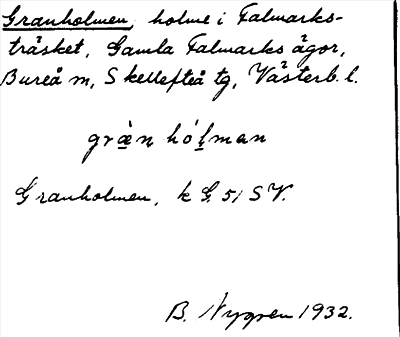 Granholmen, holme i Falmarks-
träsket, Gamla Falmarks ägor,
Bureå m, Skellefteå tg, Västerb. l.
græ̀n hól̠man
Granholmen, k G. 51 SV.
B. Nygren 1932.